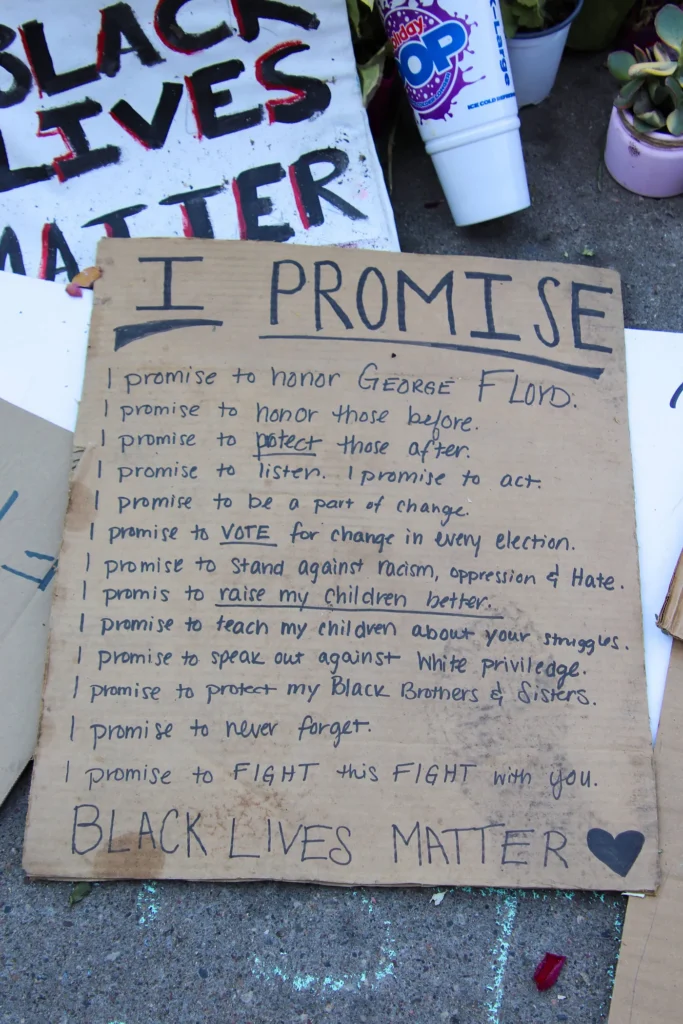 BLACK
LIVES
MATTER
Holiday
POP
X-Large
I PROMISE
I promise to honor GEORGE FLOYD.
I promise to honor those before.
I promise to potect those after.
I promise to listen. I promise to act.
I promise to be a part of change.
I promise to VOTE for change in every election.
I promise to stand against racism, oppression & Hate.
I promis to raise my children better.
I promise to teach my children about your struggles.
I promise to speak out against White priviledge.
I promise to protect my Black Brothers & Sisters.
I promise to never forget.
I promise to FIGHT this FIGHT with you.
BLACK LIVES MATTER ♥